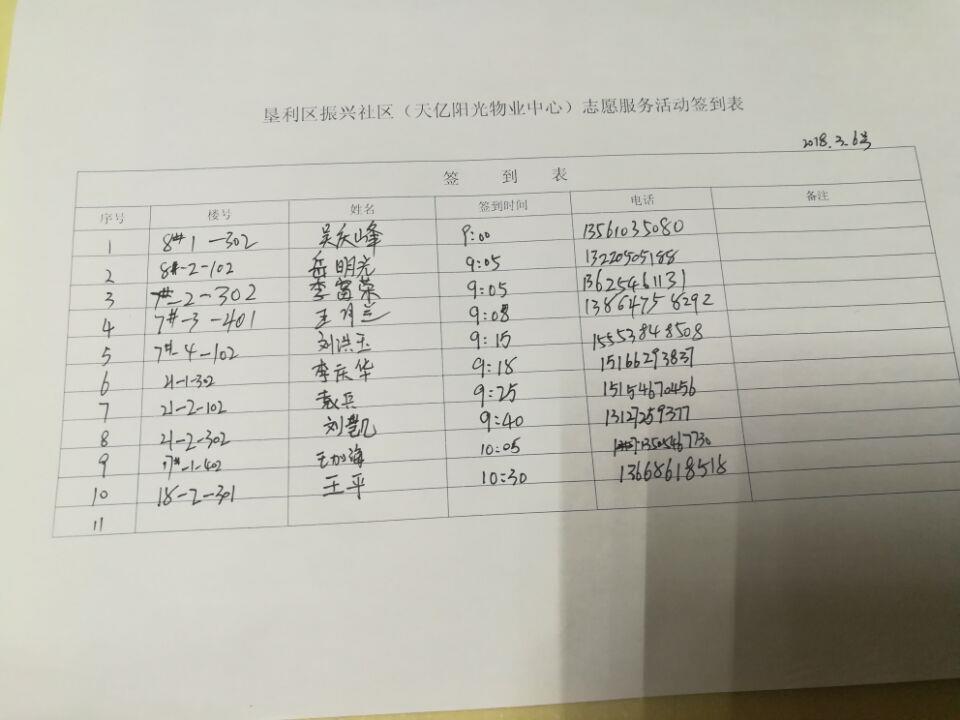 垦利区振兴社区（天亿阳光物业中心）志愿服务活动签到表
2018.3.6号
签 到 表
序号 楼号 姓名 签到时间 电话 备注
1 8#1-302 吴庆峰 9:00 13561035080
2 8#-2-102 岳明光 9:05 13220505188
3 7#-2-302 李富荣 9:05 13625461131
4 7#-3-401 王月兰 9:08 13864758292
5 7#-4-102 刘洪玉 9:15 15553848508
6 21-1-302 李庆华 9:18 15166293837
7 21-2-102 袁兵 9:25 15154670456
8 21-2-302 刘凯 9:40 13127259377
9 17#-1-402 王加海 10:05 13505467730
10 18-2-301 王平 10:30 13668618518
11